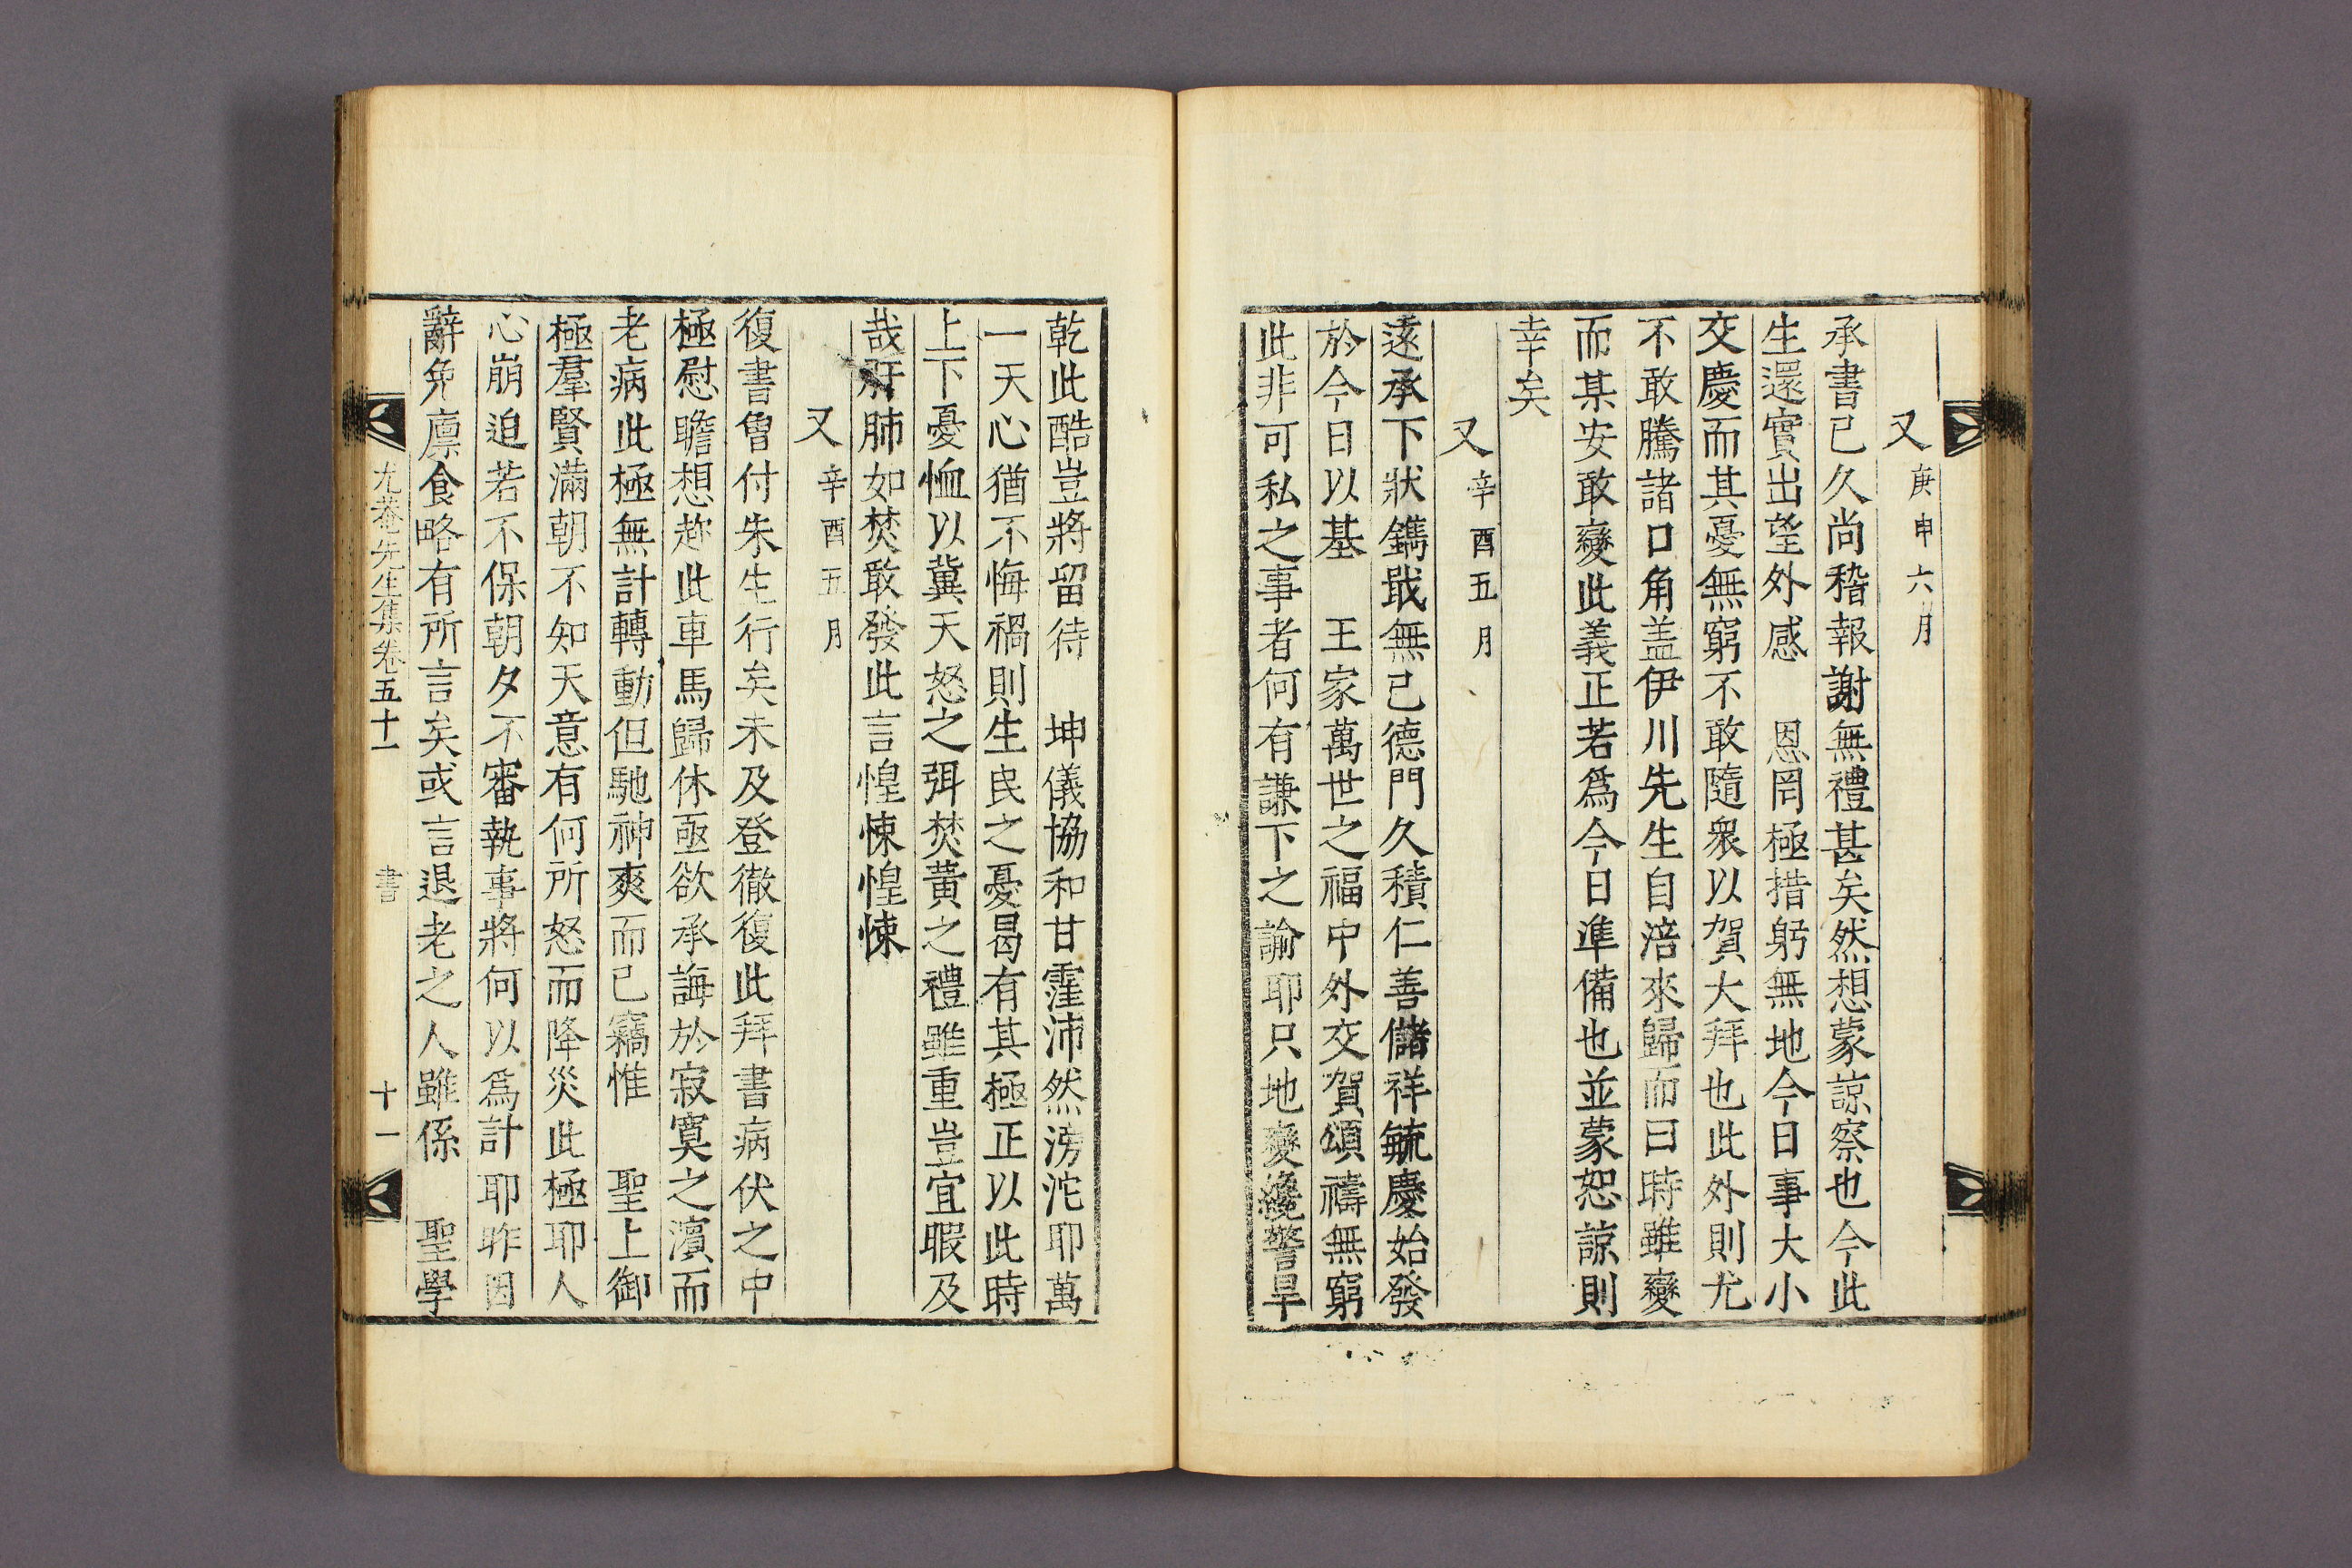 又庚申六月
承書已久尚稽報謝無禮甚矣然想蒙諒察也今此
生還實出望外感　恩罔極措躬無地今日事大小
交慶而其憂無窮不敢隨衆以賀大拜也此外則尤
不敢騰諸口角盖伊川先生自涪來歸而曰時雖變
而某安敢變此義正若爲今日準備也並蒙恕諒則
幸矣
又辛酉五月
遠承下狀鐫戢無已德門久積仁善儲祥毓慶始發
於今日以基　王家萬世之福中外交賀頌禱無窮
此非可私之事者何有謙下之諭耶只地變纔警旱
乾此酷豈將留待　坤儀協和甘霔沛然滂沱耶萬
一天心猶不悔禍則生民之憂曷有其極正以此時
上下憂恤以冀天怒之弭焚黃之禮雖重豈宜暇及
哉肝肺如焚敢發此言惶悚惶悚
又辛酉五月
復書曾付朱生行矣未及登徹復此拜書病伏之中
極慰瞻想趂此車馬歸休亟欲承誨於寂寞之濱而
老病此極無計轉動但馳神爽而已竊惟　聖上御
極羣賢滿朝不知天意有何所怒而降災此極耶人
心崩迫若不保朝夕不審執事將何以爲計耶昨因
辭免廩食略有所言矣或言退老之人雖係　聖學
尤菴先生集卷五十一　書　十一